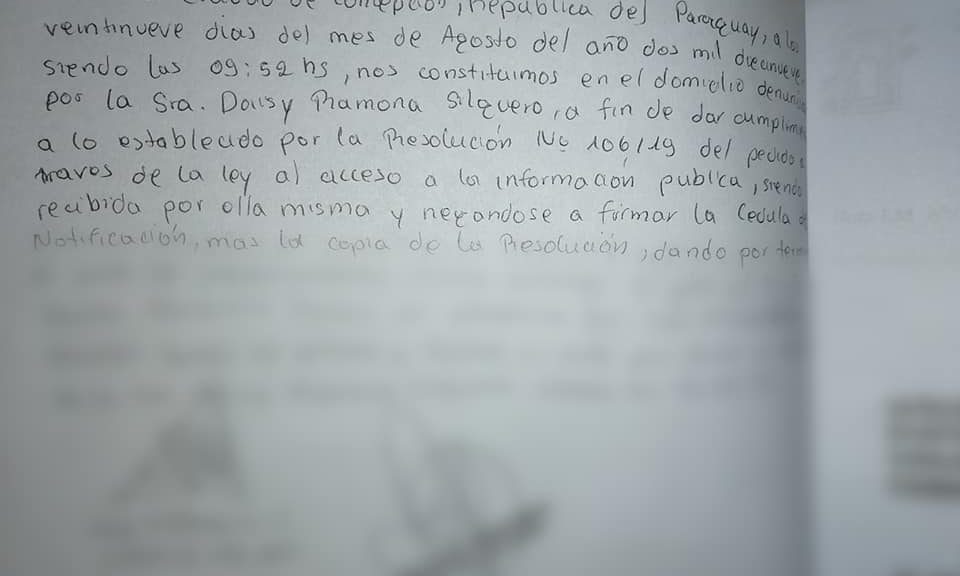 de Concepción, República del Paraguay, a los
veintinueve dias del mes de Agosto del año dos mil diecinueve
siendo las 09:52 hs, nos constituimos en el domicilio
por la Sra. Daisy Ramona Silguero, a fin de dar
a lo establecido por la Resolución Nº 106/19 del pedido
traves de la ley al acceso a la informacion publica, siendo
recibida por ella misma y negandose a firmar la Cedula
Notificación, mas la copia de la Resolución, dando por